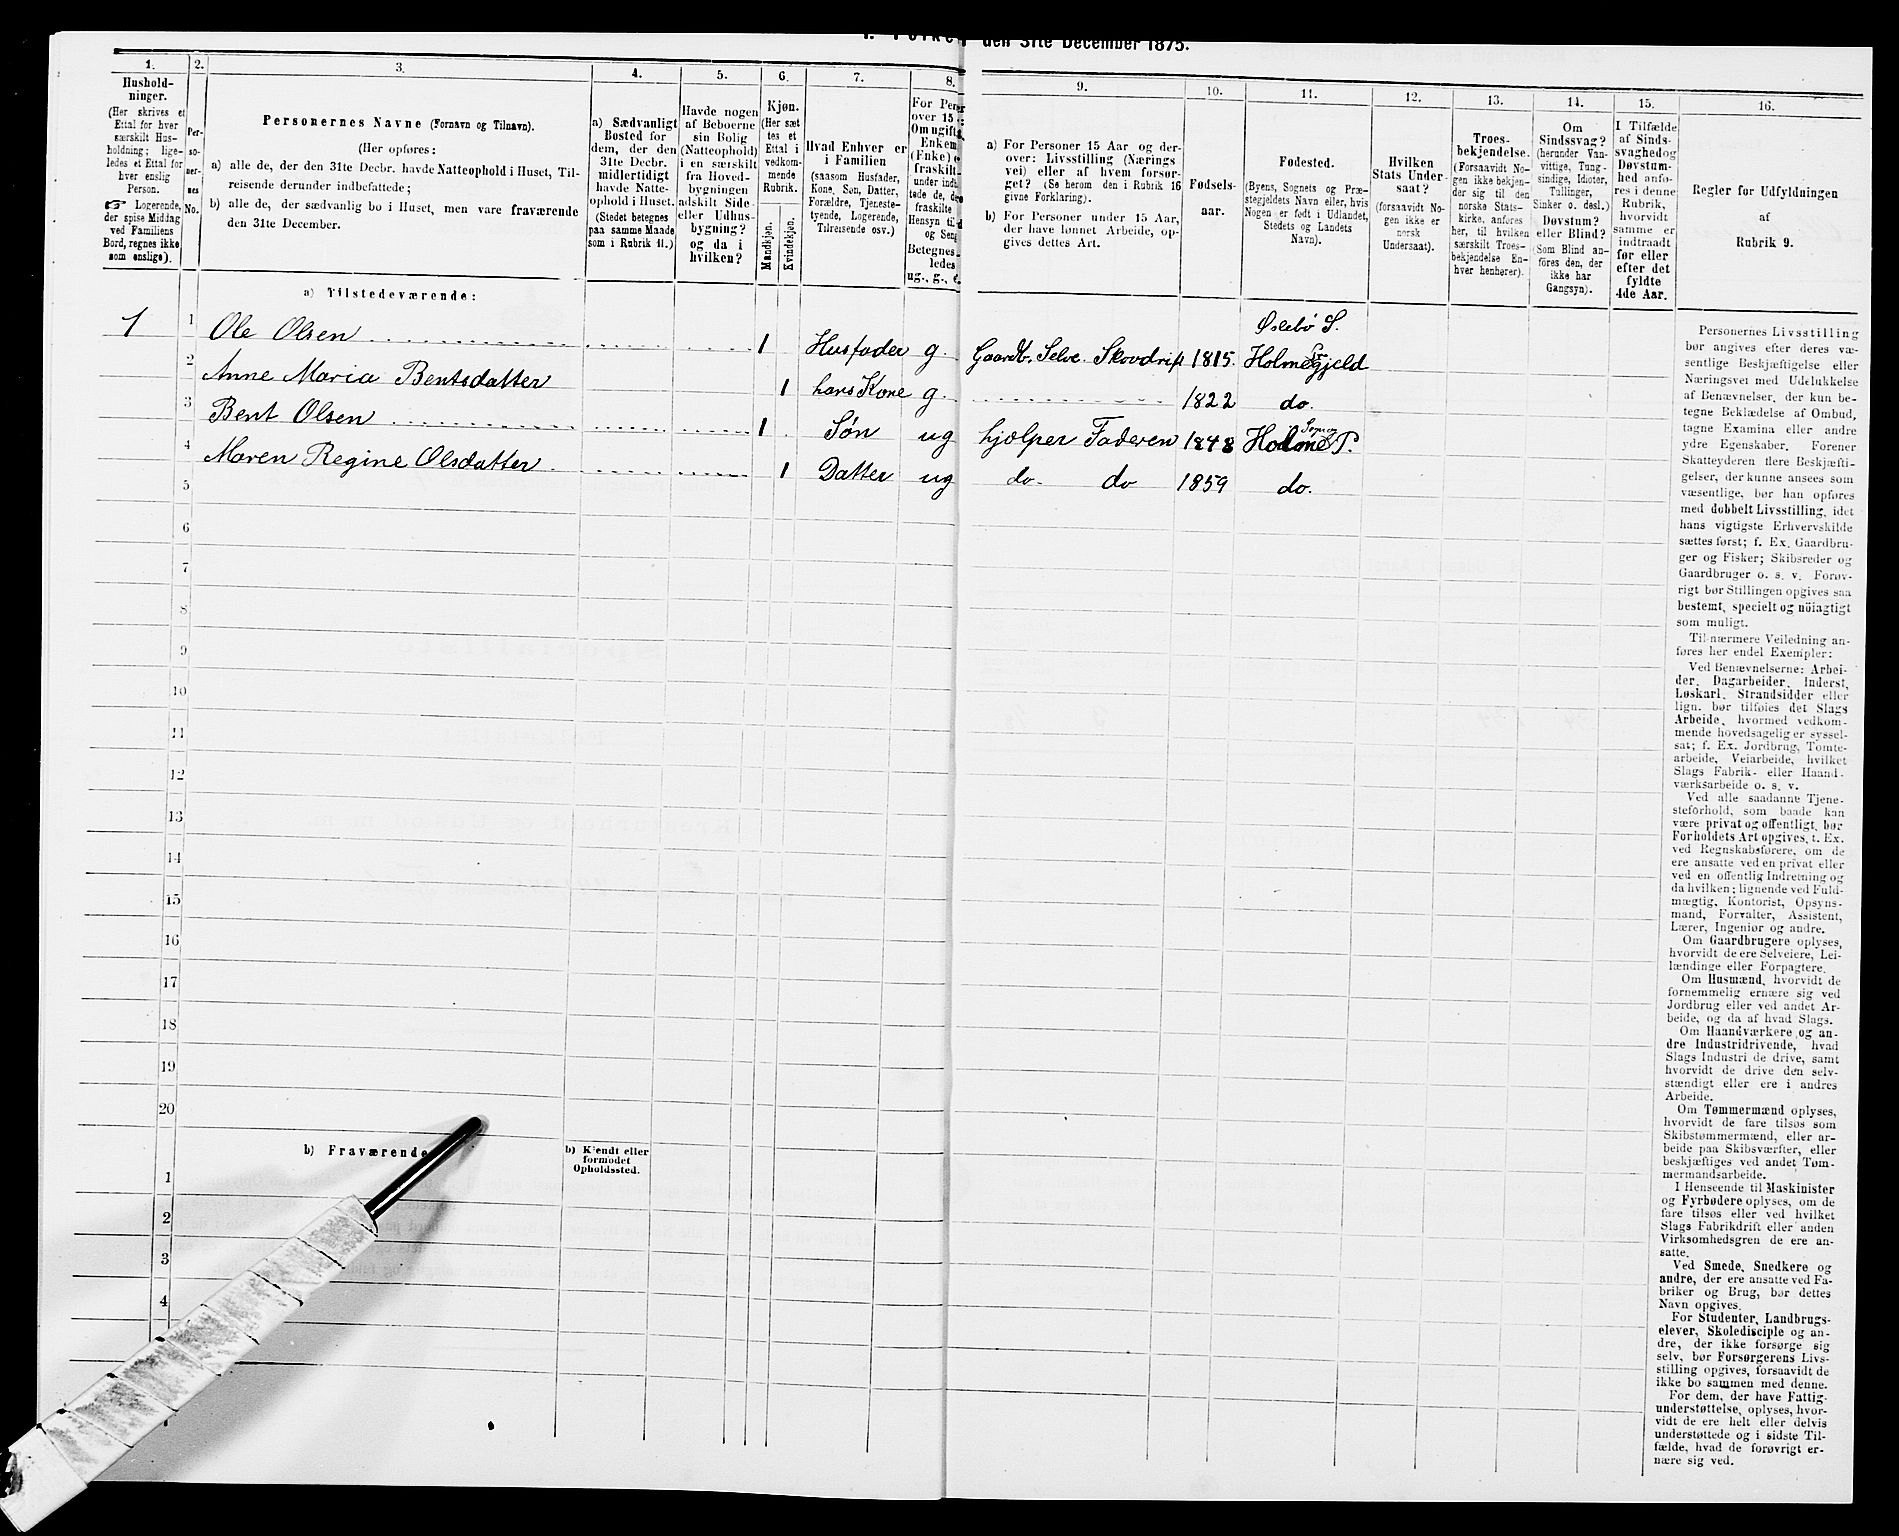 den 31te December 1875.
1.
Hushold-
ninger.
(Her skrives et
Ettal for hver
særskilt Hus-
holdning; lige-
ledes et Ettal for
hver enslig
Person.
☞ Logerende,
der spise Middag
ved Familiens
Bord, regnes ikke
som enslige).
2.
Per-
so-
ner-
nes
No.
3.
Personernes Navne (Fornavn og Tilnavn).
(Her opføres:
a) alle de, der den 31te Decbr. havde Natteophold i Huset, Til-
reisende derunder indbefattede;
b) alle de, der sædvanlig bo i Huset, men vare fraværende
den 31te December.
4.
a) Sædvanligt
Bosted for
dem, der den
31te Decbr.
midlertidigt
havde Natte-
ophold i Huset.
(Stedet betegnes
paa samme Maade
som i Rubrik 11.)
5.
Havde nogen
af Beboerne
sin Bolig
(Natteophold)
i en særskilt
fra Hoved-
bygningen
adskilt Side-
eller Udhus-
bygning?
og da i
hvilken?
6.
Kjøn.
(Her sæt
tes et
Ettal i
vedkom-
mende
Rubrik.
Mandkjøn.
Kvindekjøn.
7.
Hvad Enhver er
i Familien
(saasom Husfader,
Kone, Søn, Datter,
Forældre, Tjeneste-
tyende, Logerende,
Tilreisende osv.)
8.
For Per
over 15
Om ugift,
Enkem
(Enke) e
fraskilt
under ind
tede de, de
fraskilte
Hensyn til
og Sen
Betegnes
ledes
ug., g., e.
9.
a) For Personer 15 Aar og der-
over: Livsstilling (Nærings
vei) eller af hvem forsør-
get? (Se herom den i Rubrik 16
givne Forklaring).
b) For Personer under 15 Aar,
der have lønnet Arbeide, op-
gives dettes Art.
10.
Fødsels-
aar.
11.
Fødested.
(Byens, Sognets og Præ-
stegjeldets Navn eller, hvis
Nogen er født i Udlandet,
Stedets og Landets
Navn).
12.
Hvilken
Stats Under-
saat?
(forsaavidt No-
gen ikke er
norsk
Undersaat).
13.
Troes-
bekjendelse.
(Forsaavidt No-
gen ikke bekjen-
der sig til den
norske Stats-
kirke, anføres
her, til hvilken
særskilt Troes-
bekjendelse En-
hver henhører).
14.
Om
Sindssvag?
(herunder Van-
vittige, Tung-
sindige, Idioter,
Tullinger,
Sinker o. desl.)
Døvstum?
eller Blind?
(Som Blind an-
føres den, der
ikke har
Gangsyn).
15.
I Tilfælde
af Sinds-
svaghed og
Døvstum-
hed anfø-
res i denne
Rubrik,
hvorvidt
samme er
indtraadt
før eller
efter det
fyldte
4de Aar.
16.
Regler for Udfyldningen
af
Rubrik 9.
a) Tilstedeværende:
1 1 Ole Olsen 1 Husfader g. Gaardb. Selve. Skovdrift 1815. Øslebø S. Holme Pr.gjeld
2 Anne Maria Bentsdatter 1 hans Kone g. 1822 do.
3 Bent Olsen 1 Søn ug hjælper Faderen 1848 Holme Sogn P.
4 Maren Regine Olsdatter 1 Datter ug do. do 1859 do.
5
6
7
8
9
10
11
12
13
14
15
16
17
18
19
20
b) Fraværende
b) Kjendt eller
formodet
Opholdssted.
1
2
3
4
Personernes Livsstilling
bør angives efter deres væ-
sentlige Beskjæftigelse eller
Næringsvei med Udelukkelse
af Benævnelser, der kun be-
tegne Beklædelse af Ombud,
tagne Examina eller andre
ydre Egenskaber. Forener
Skatteyderen flere Beskjæfti-
gelser, der kunne ansees som
væsentlige, bør han opføres
med dobbelt Livsstilling, idet
hans vigtigste Erhvervskilde
sættes først; f. Ex. Gaardbru-
ger og Fisker; Skibsreder og
Gaardbruger o. s. v. Forøv-
rigt bør Stillingen opgives saa
bestemt, specielt og nöiagtigt
som muligt.
Til nærmere Veiledning an-
føres her endel Exempler:
Ved Benævnelserne: Arbei-
der, Dagarbeider, Inderst,
Løskarl, Strandsidder eller
lign. bør tilføies det Slags
Arbeide, hvormed vedkom-
mende hovedsagelig er syssel-
sat; f. Ex. Jordbrug, Tomte-
arbeide, Veiarbeide, hvilket
Slags Fabrik- eller Haand-
værksarbeide o. s. v.
Ved alle saadanne Tjene-
steforhold, som baade kan
være privat og offentligt, bør
Forholdets Art opgives, t. Ex.
ved Regnskabsførere, om de
ere ansatte ved en privat eller
ved en offentlig Indretning og
da hvilken; lignende ved Fuld-
mægtig, Kontorist, Opsyns-
mand, Forvalter, Assistent,
Lærer, Ingeniør og andre.
Om Gaardbrugere oplyses,
hvorvidt de ere Selveiere, Lei-
lændinge eller Forpagtere.
Om Husmænd, hvorvidt de
fornemmelig ernære sig ved
Jordbrug eller ved andet Ar-
beide, og da af hvad Slags.
Om Haandværkere og an-
dre Industridrivende, hvad
Slags Industri de drive, samt
hvorvidt de drive den selv-
stændigt eller ere i andres
Arbeide.
Om Tømmermænd oplyses,
hvorvidt de fare tilsøs som
Skibstømmermænd, eller ar-
beide paa Skibsværfter, eller
beskjæftiges ved andet Tøm-
mermandsarbeide.
I Henseende til Maskinister
og Fyrbødere oplyses, om de
fare tilsøs eller ved hvilket
Slags Fabrikdrift eller anden
Virksomhedsgren de ere an-
satte.
Ved Smede, Snedkere og
andre, der ere ansatte ved Fa-
briker og Brug, bør dettes
Navn opgives.
For Studenter, Landbrugs-
elever, Skoledisciple og an-
dre, der ikke forsørge sig
selv, bør Forsørgerens Livs-
stilling opgives, forsaavidt de
ikke bo sammen med denne.
For dem, der have Fattig-
understøttelse, oplyses, hvor-
vidt de ere helt eller delvis
understøttede og i sidste Til-
fælde, hvad de forøvrigt er-
nære sig ved.